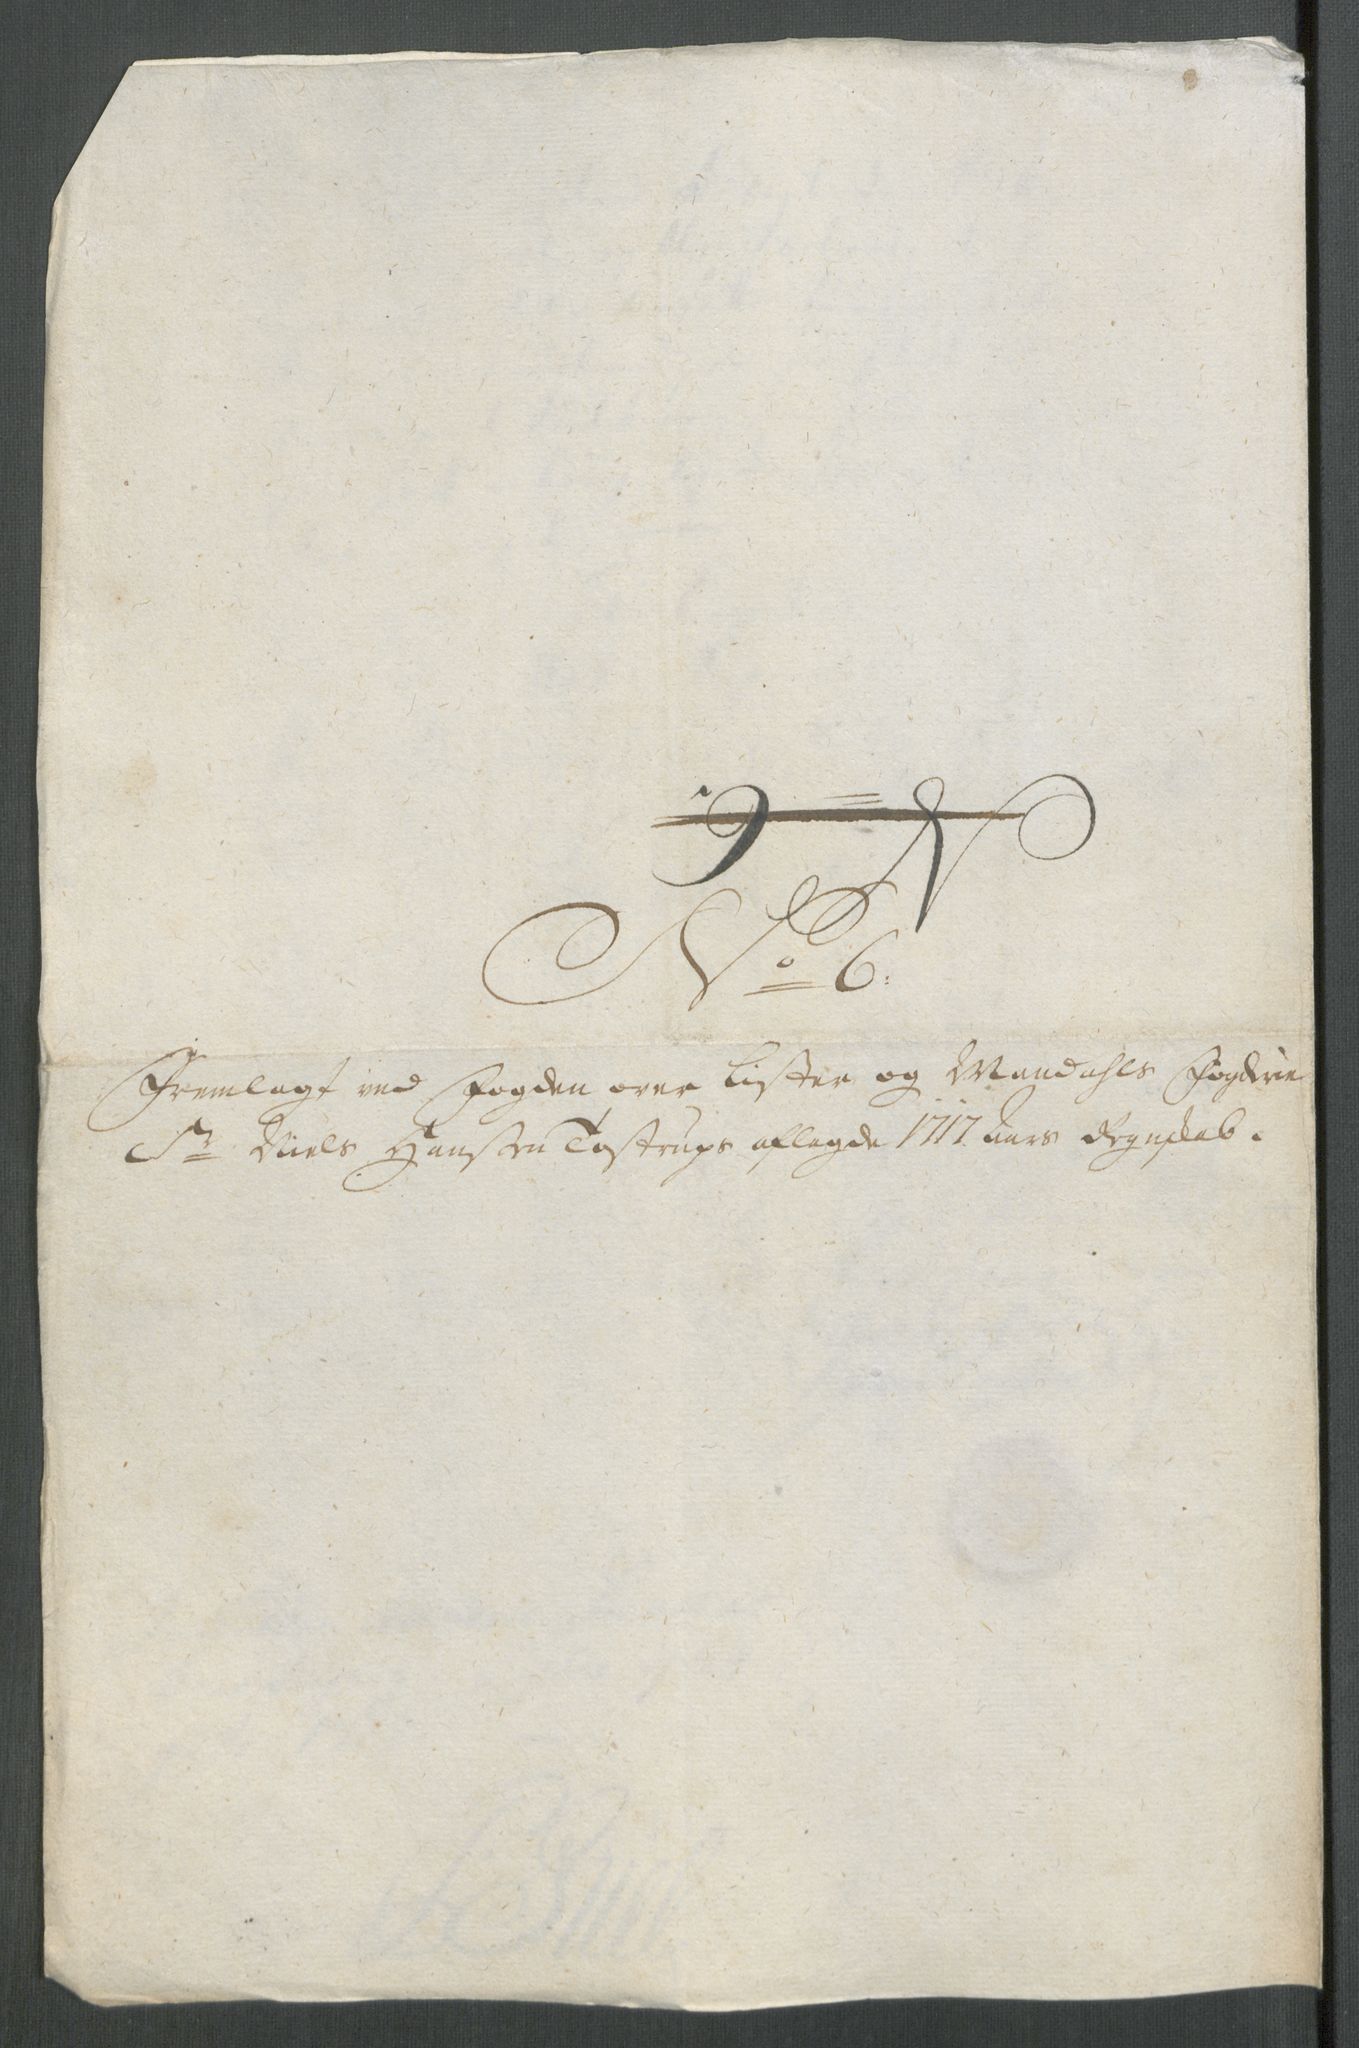 No 6:
Fremlagt ved Fogden over Lister og Mandahls Fogderie
Sr Niels Hansen Tostrups aflagde 1717 Aars Regnskab.